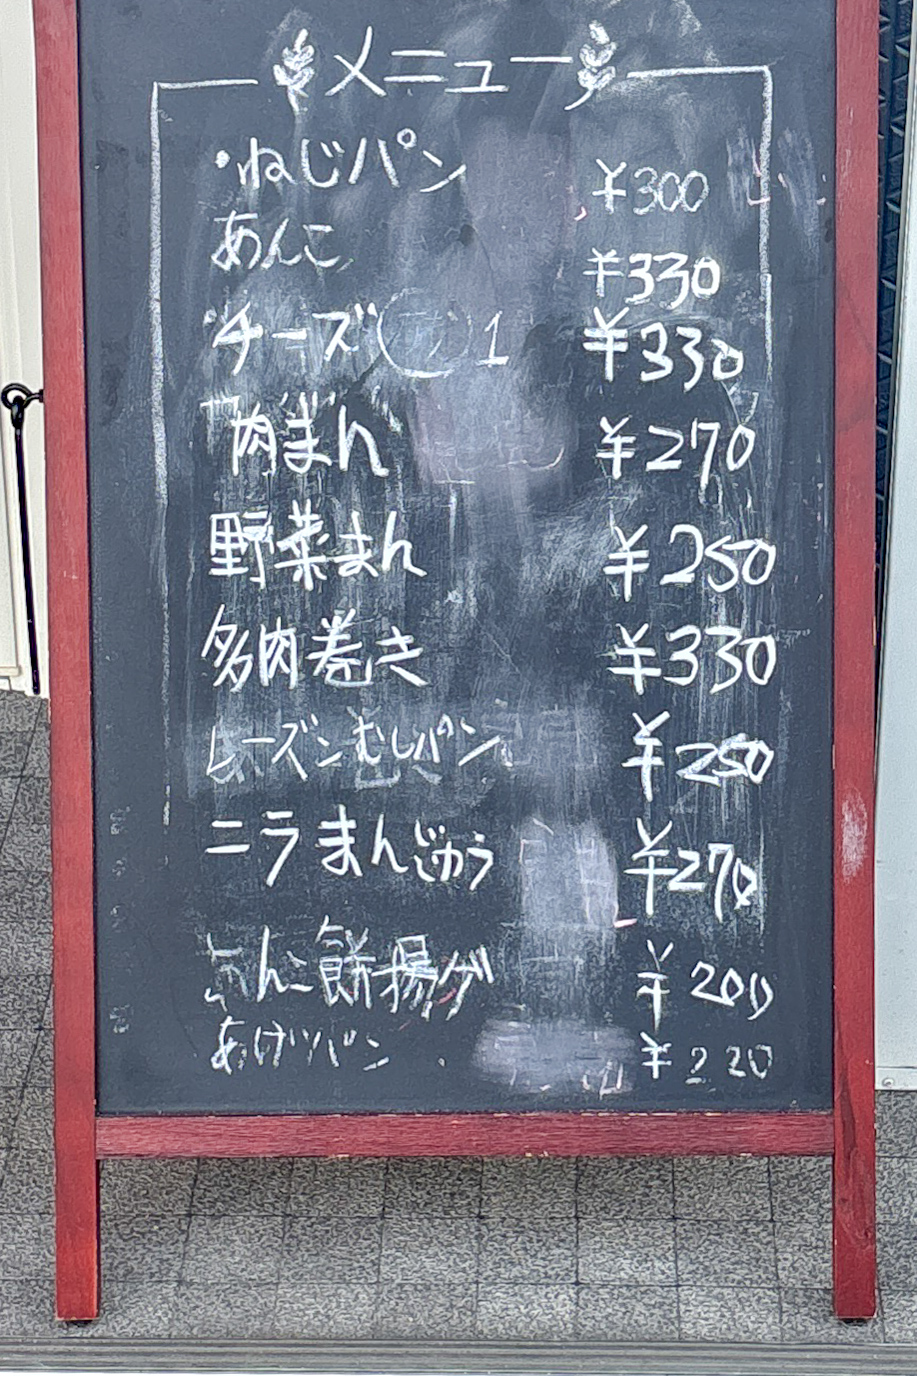 メニュー
・ねじパン ¥300
あんこ ¥330
・チーズ 1 ¥330
肉まん ¥270
野菜まん ¥250
多肉巻き ¥330
レーズンむしパン ¥250
ニラまんじゅう ¥270
あんこ餅揚げ ¥200
あげパン ¥220